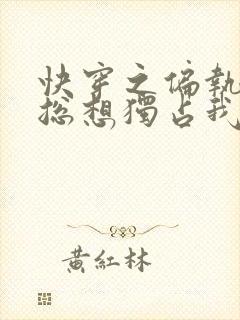 快穿之偏執
總想獨占我
黃紅林